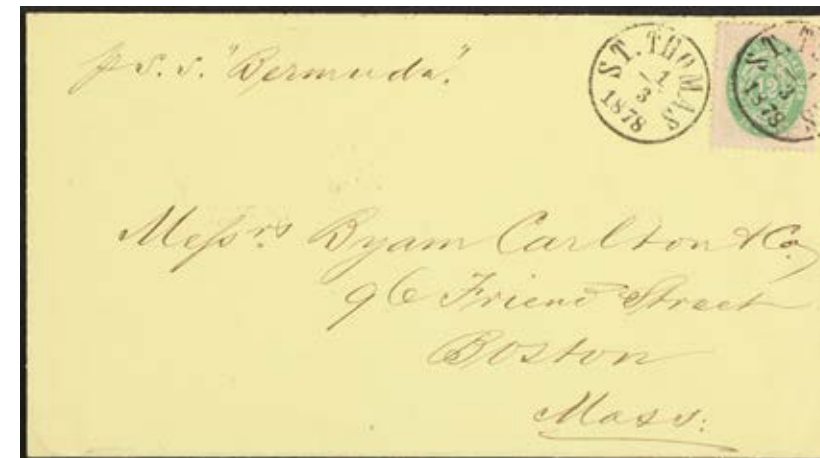 p s.s. "Bermuda".
ST. THOMAS
1/3
1878
ST. T
1/3
1878
12
Messrs Byam Carlton & Co,
96 Friend Street
Boston
Mass: